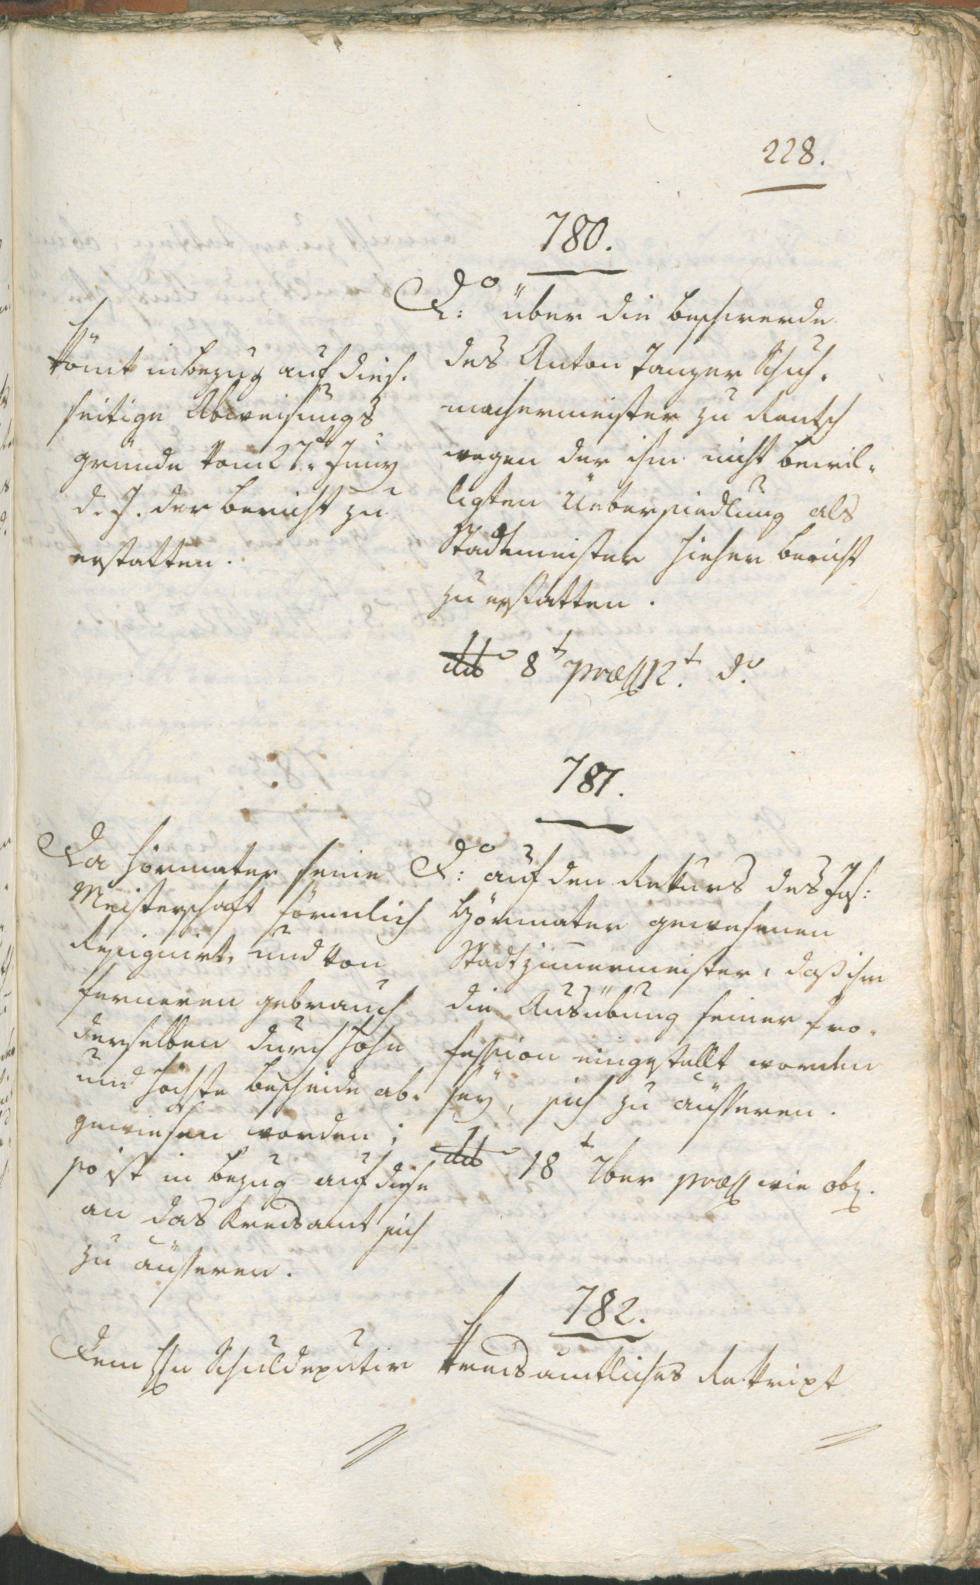 228.
780.
D:o über die Beschwerde
des Anton Tanzer Schuh-
machermeister zu Rentsch
wegen der ihm nicht bewil-
ligten Uebersiedlung als
Stadtmeister hieher Bericht
zu erstatten.
dto 8t præs 12t do
Kömt in Bezug auf dies-
seitige Abweisungs
gründe vom 27t Juny
d. J. der Bericht zu
erstatten.
781.
D:o auf den Rekurs des Jos:
Hörmater gewesenen
Stadtzim̅ermeister, daß ihm
die Ausübung seiner Pro-
fession eingestellt worden
sey, sich zu äusseren.
dto 18t 7ber præs wie obg.
Da Hörmater seine
Meisterschaft förmlich
resignirt, und von
ferneren gebrauch
derselben durch hohe
und höchste Bescheide ab-
gewiesen worden;
so ist in Bezug auf diese
an das Kreisamt sich
zu äusseren.
782.
Kreisämtliches Rekript
Dem Hn Schuldeputir